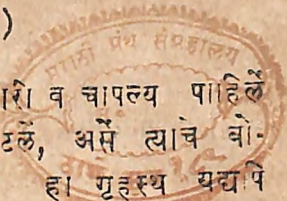 )
मराठी ग्रंथ संग्रहालय
ारी व चापल्य पाहिलें
टलें, असें त्याचे बो-
हा गृहस्थ यद्यपि